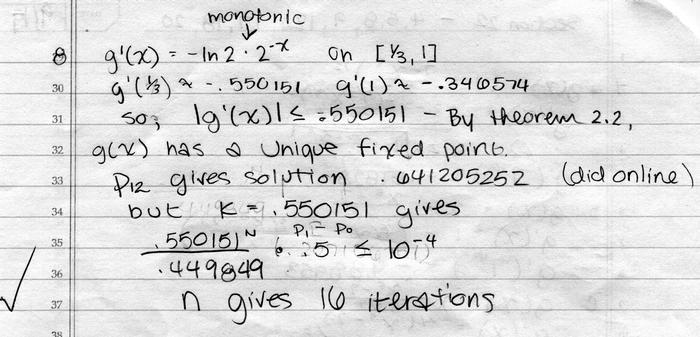 monotonic
8 g'(x) = -ln 2 · 2^-x on [1/3, 1]
30 g'(1/3) ≈ -.550151 g'(1) ≈ -.346574
31 so; |g'(x)| ≤ .550151 - By theorem 2.2,
32 g(x) has a unique fixed point.
33 P12 gives solution .641205252 (did online)
34 but K = .550151 gives
P1 - P0
35 .550151^N .5 ≤ 10^-4
36 .449849
37 n gives 16 iterations
38